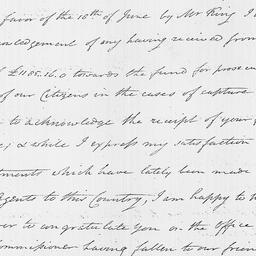 favor of the 10th of June by Mr King I
knowledgement of my having received from
£1185.16.0 towards the fund for prosecu
of our Citizens in the cases of capture
to acknowledge the receipt of your
& while I express my satisfaction
tments which have lately been made
Agents to this Country, I am happy to h
er to congratulate you on the office
Commissioner having fallen to our frien